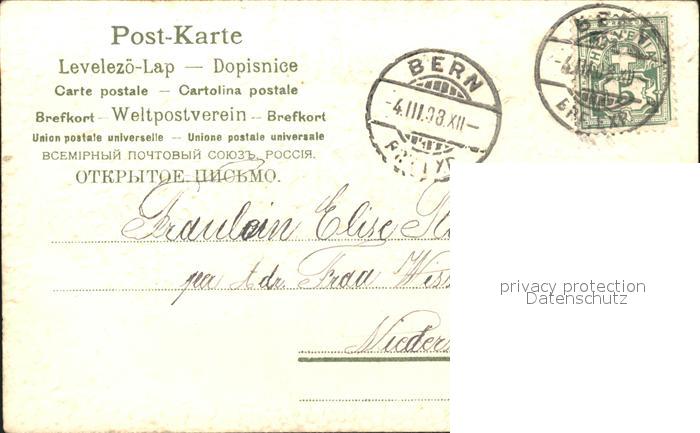 Post-Karte
Levelező-Lap — Dopisnice
Carte postale — Cartolina postale
Brefkort — Weltpostverein — Brefkort
Union postale universelle — Unione postale universale
ВСЕМІРНЫЙ ПОЧТОВЫЙ СОЮЗЪ, РОССІЯ.
ОТКРЫТОЕ ПИСЬМО.
BERN
-4.III.08.XII-
HELVETIA
Fräulein Elise
per Adr. Frau
privacy protection
Datenschutz